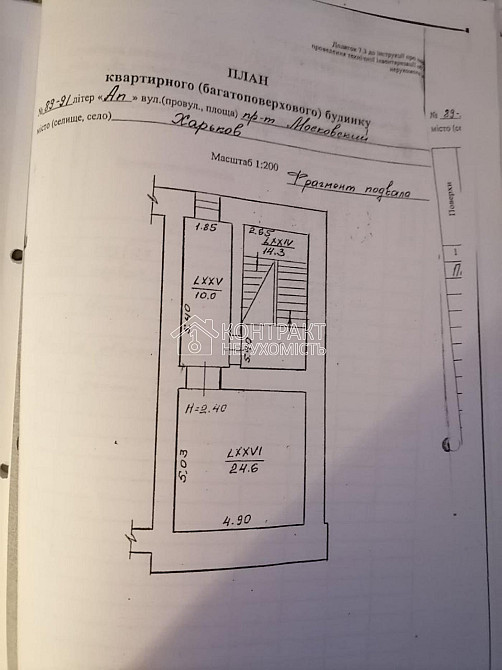 Додаток 7.3 до Інструкції про
проведення технічної інвентаризації
нерухомого
ПЛАН
квартирного (багатоповерхового) будинку
№ 89-91 літер «Ап» вул.(провул., площа) пр-т Московский
місто (селище, село) Харьков
Масштаб 1:200
Фрагмент подвала
№ 89-
місто (се
Поверхи
1
П
1.85
2.65
LXXIV
14.3
LXXV
10.0
5.40
5.40
КОНТРАКТ
НЕРУХОМІСТЬ
H=2.40
LXXVI
24.6
5.03
4.90